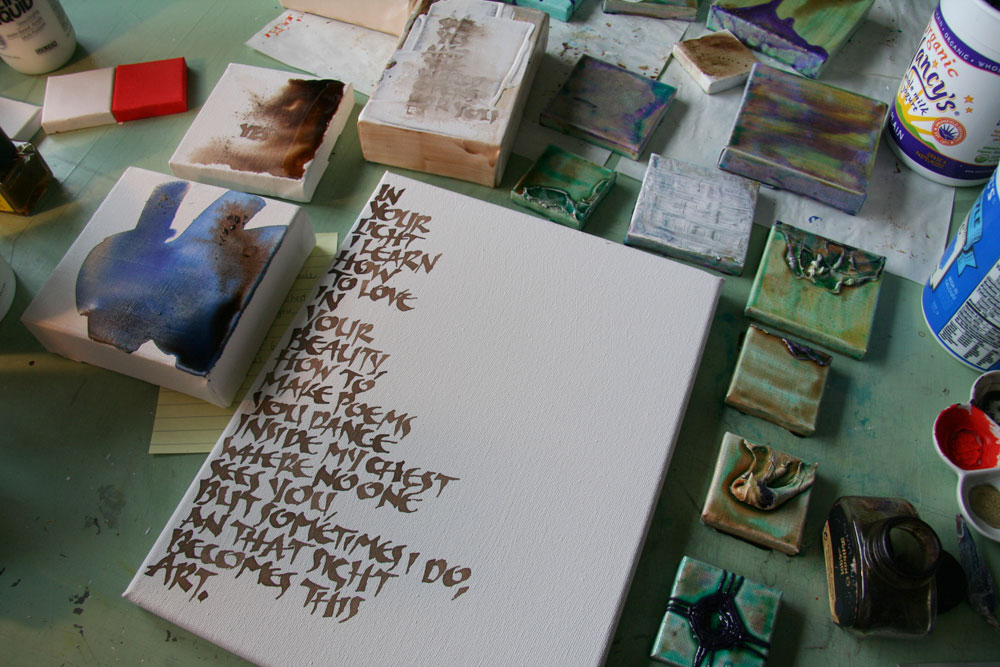 IN
YOUR
LIGHT
I LEARN
HOW
TO LOVE
IN
YOUR
BEAUTY,
HOW TO
MAKE POEMS
YOU DANCE
INSIDE MY CHEST
WHERE NO ONE
SEES YOU
BUT SOMETIMES I DO,
AN THAT SIGHT
BECOMES THIS
ART.
YES
QUID
organic
ancy's
milk